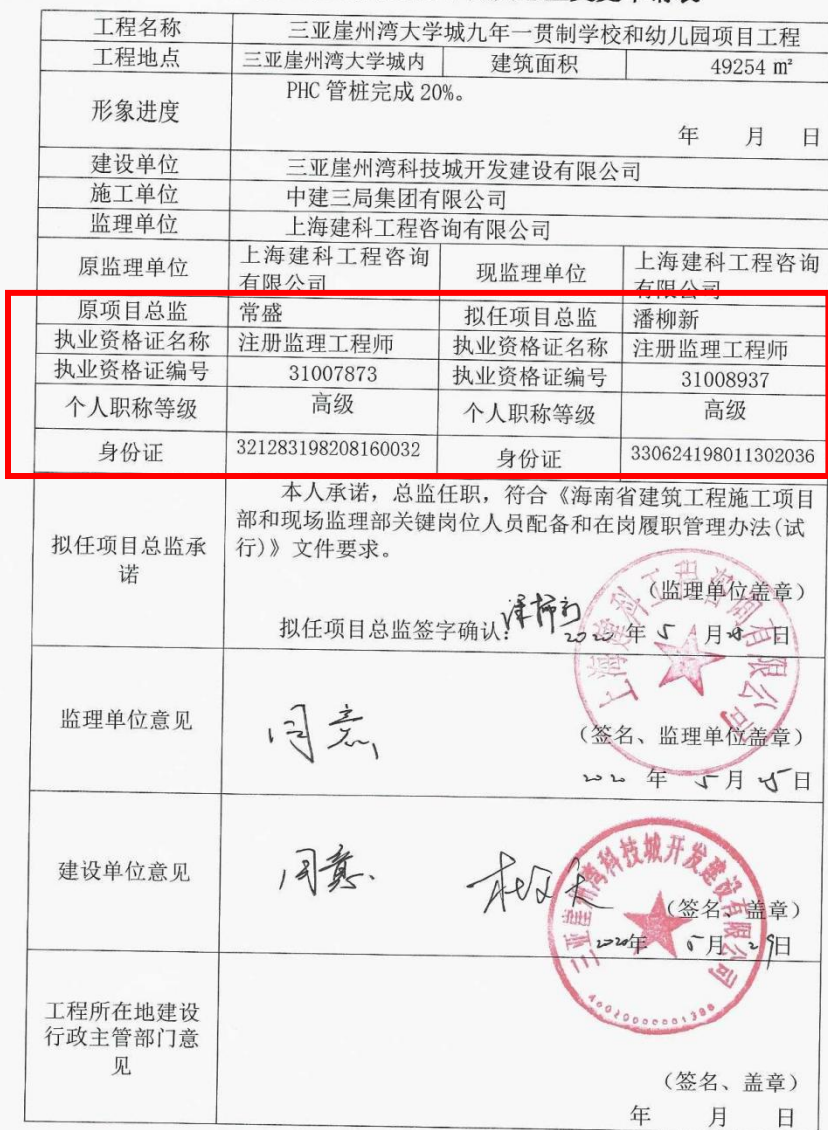 工程名称 三亚崖州湾大学城九年一贯制学校和幼儿园项目工程
工程地点 三亚崖州湾大学城内 建筑面积 49254 ㎡
形象进度 PHC 管桩完成 20%。
年 月 日
建设单位 三亚崖州湾科技城开发建设有限公司
施工单位 中建三局集团有限公司
监理单位 上海建科工程咨询有限公司
原监理单位 上海建科工程咨询
有限公司
现监理单位 上海建科工程咨询
有限公司
原项目总监 常盛 拟任项目总监 潘柳新
执业资格证名称 注册监理工程师 执业资格证名称 注册监理工程师
执业资格证编号 31007873 执业资格证编号 31008937
个人职称等级 高级 个人职称等级 高级
身份证 321283198208160032 身份证 330624198011302036
拟任项目总监承
诺
本人承诺,总监任职,符合《海南省建筑工程施工项目
部和现场监理部关键岗位人员配备和在岗履职管理办法(试
行)》文件要求。
(监理单位盖章)
拟任项目总监签字确认: 潘柳新 2020 年 5 月 日
上海建科工程咨询有限公司
监理单位意见 同意
(签名、监理单位盖章)
2020 年 5 月 25 日
建设单位意见 同意.
(签名、盖章)
2020年 5月 29日
三亚崖州湾科技城开发建设有限公司
工程所在地建设
行政主管部门意
见
(签名、盖章)
年 月 日